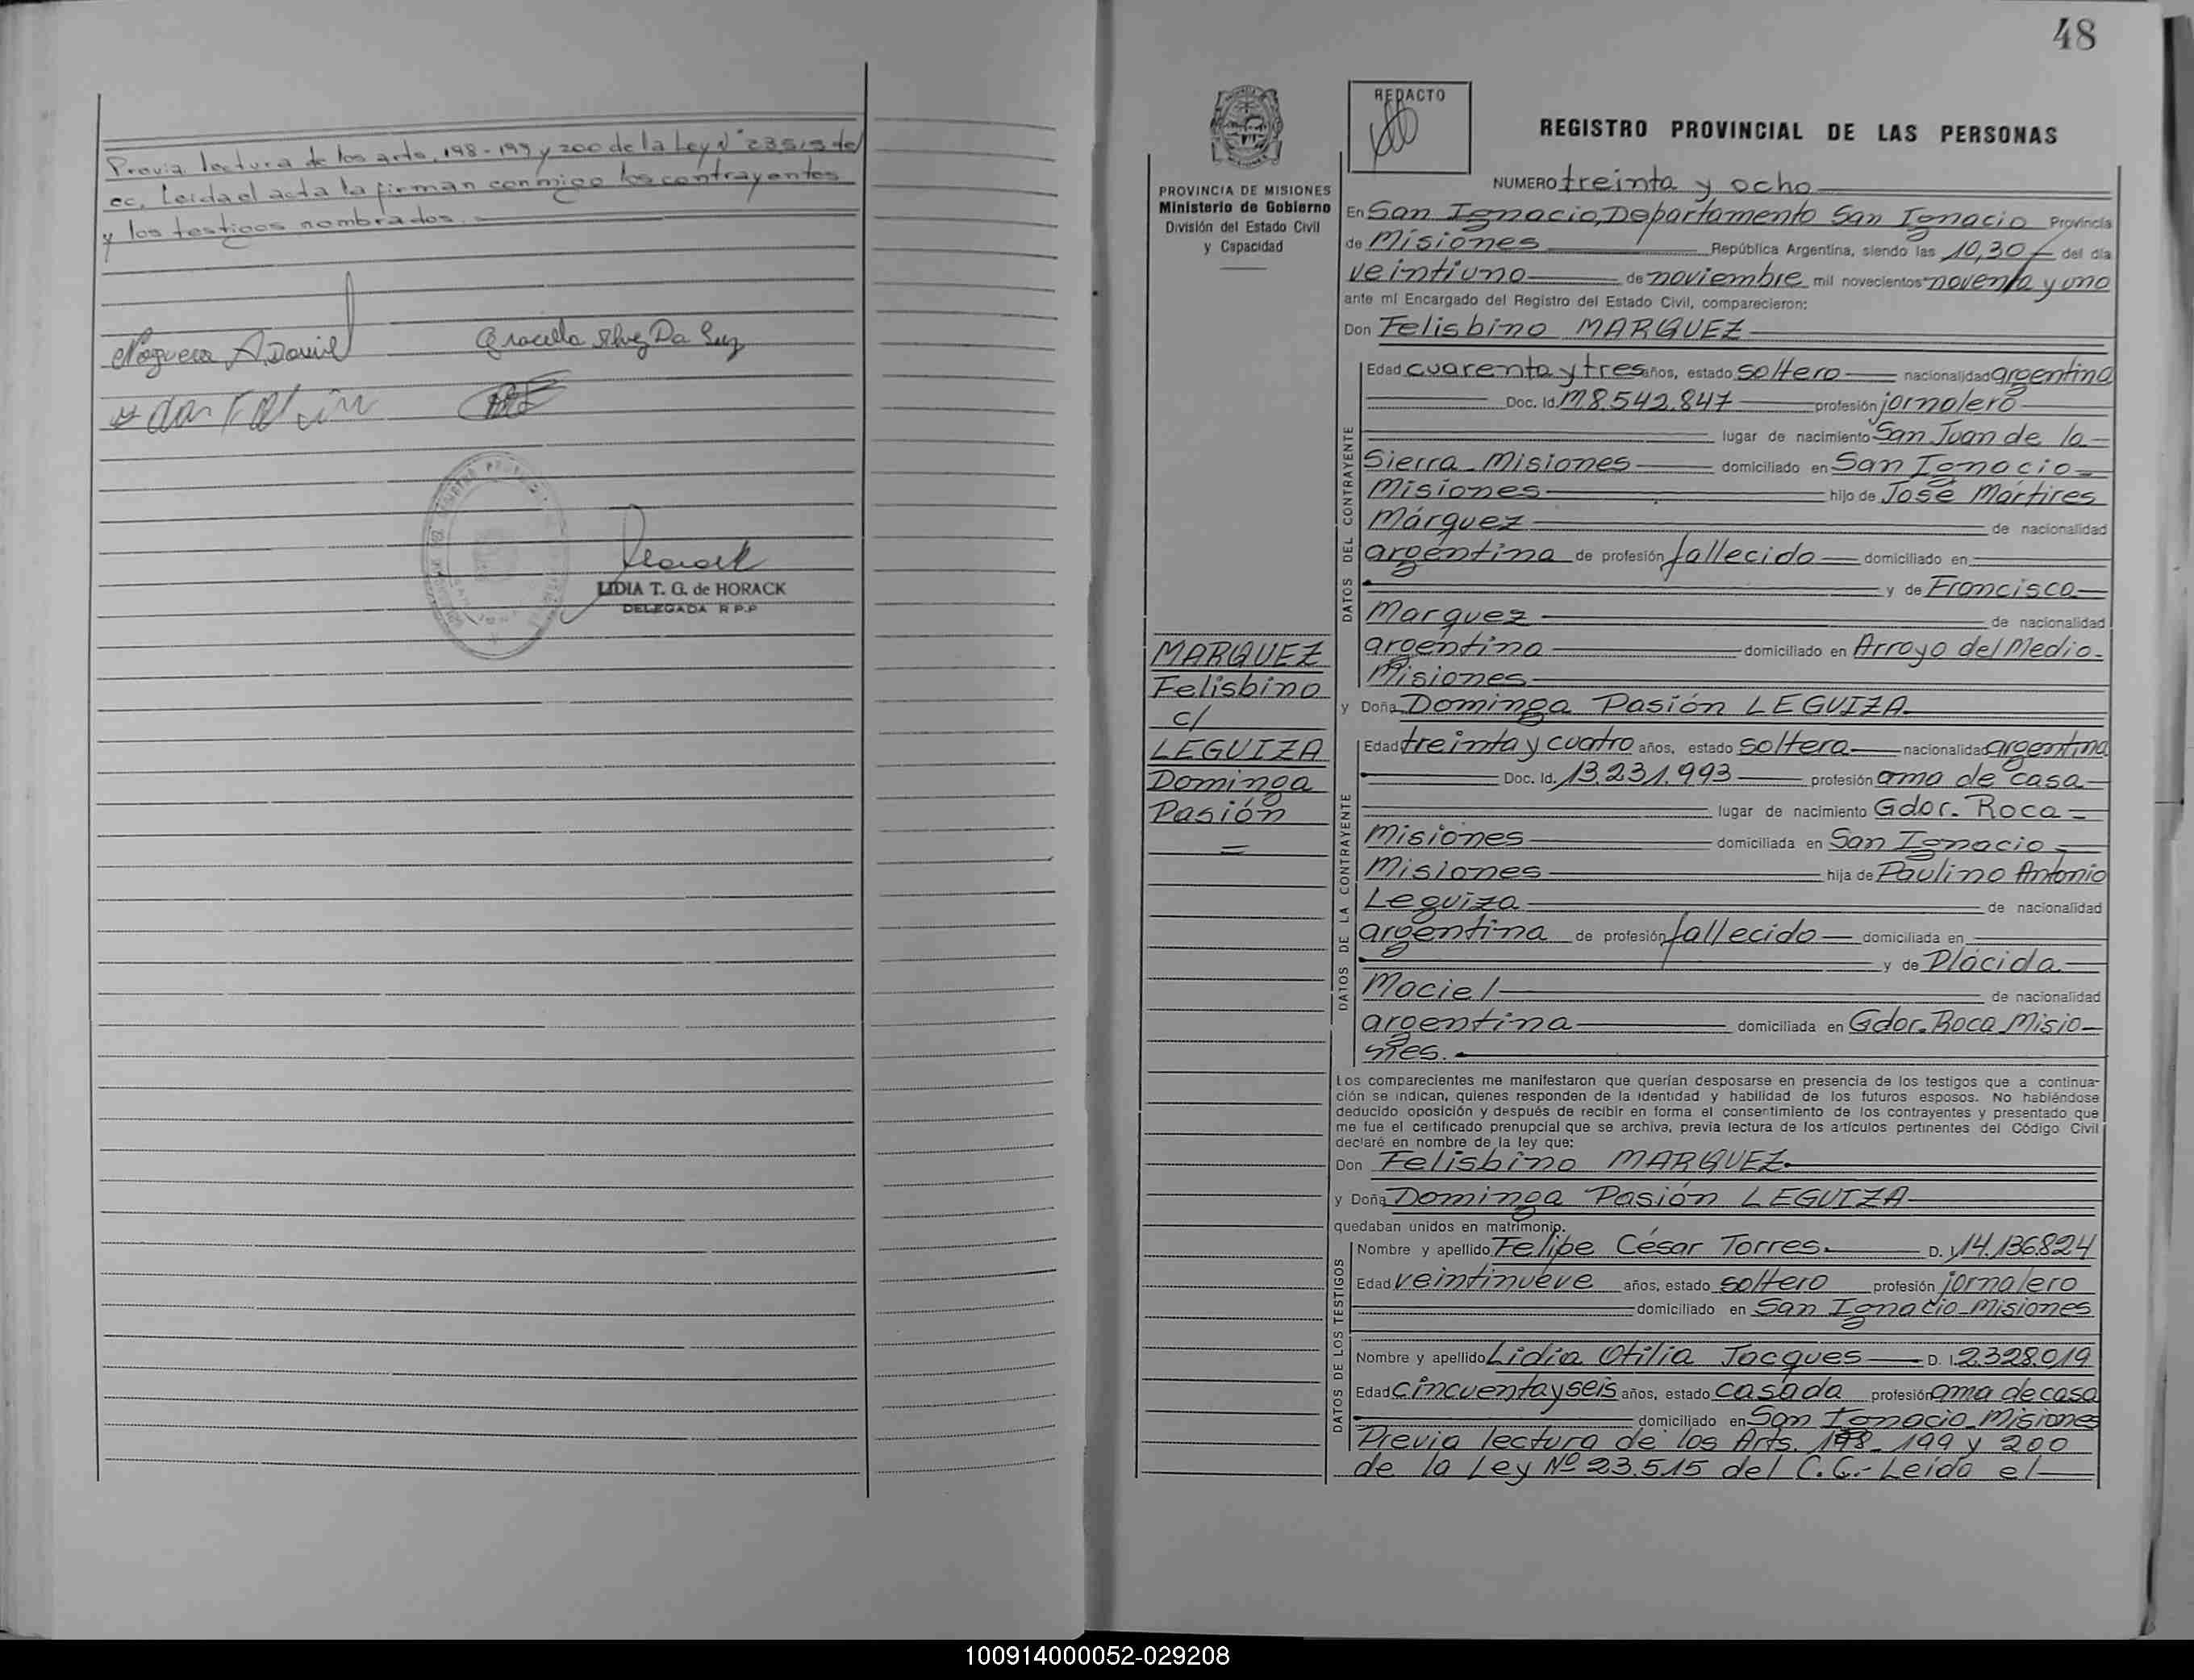 Previa lectura de los arts. 198-199 y 200 de la Ley N° 23515 del
cc. Leída el acta la firman conmigo los contrayentes
y los testigos nombrados.
Noguera A. Daniel
LIDIA T. G. de HORACK
DELEGADA R P.P
48
REDACTO
REGISTRO PROVINCIAL DE LAS PERSONAS
PROVINCIA DE MISIONES
Ministerio de Gobierno
División del Estado Civil
y Capacidad
NUMERO treinta y ocho
En San Ignacio, Departamento San Ignacio Provincia
de Misiones República Argentina, siendo las 10,30 del día
veintiuno de noviembre mil novecientos noventa y uno
ante mí Encargado del Registro del Estado Civil, comparecieron:
Don Felisbino MARQUEZ
MARQUEZ
Felisbino
c/
LEGUIZA
Dominga
Pasión
=
DATOS DEL CONTRAYENTE
Edad cuarenta y tres años, estado soltero nacionalidad argentina
Doc. Id. M8.542.847 profesión jornalero
lugar de nacimiento San Juan de la
Sierra_Misiones domiciliado en San Ignacio
Misiones hijo de José Mártires
Márquez de nacionalidad
argentina de profesión fallecido domiciliado en
y de Francisca
Marquez de nacionalidad
argentina domiciliado en Arroyo del Medio-
Misiones
y Doña Dominga Pasión LEGUIZA
DATOS DE LA CONTRAYENTE
Edad treinta y cuatro años, estado soltera nacionalidad argentina
Doc. Id. 13.231.993 profesión ama de casa
lugar de nacimiento Gdor. Roca
Misiones domiciliada en San Ignacio
Misiones hija de Paulino Antonio
Leguiza de nacionalidad
argentina de profesión fallecido domiciliada en
y de Plácida
Maciel de nacionalidad
argentina domiciliada en Gdor. Roca Misio-
nes.
Los comparecientes me manifestaron que querían desposarse en presencia de los testigos que a continua-
ción se indican, quienes responden de la identidad y habilidad de los futuros esposos. No habiéndose
deducido oposición y después de recibir en forma el consentimiento de los contrayentes y presentado que
me fue el certificado prenupcial que se archiva, previa lectura de los artículos pertinentes del Código Civil
declaré en nombre de la ley que:
Don Felisbino MARQUEZ
y Doña Dominga Pasión LEGUIZA
quedaban unidos en matrimonio.
DATOS DE LOS TESTIGOS
Nombre y apellido Felipe César Torres D. I. 14.136.824
Edad veintinueve años, estado soltero profesión jornalero
domiciliado en San Ignacio_Misiones
Nombre y apellido Lidia Otilia Jacques D. I. 2.328.019
Edad cincuenta y seis años, estado casada profesión ama de casa
domiciliado en San Ignacio_Misiones
Previa lectura de los Arts. 198_199 y 200
de la Ley Nº 23.515 del C.C.- Leída el
100914000052-029208